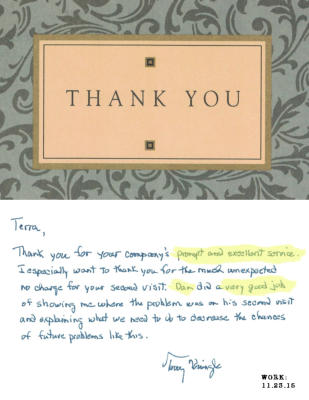 THANK YOU
Terra,
Thank you for your company's prompt and excellent service.
I especially want to thank you for the much unexpected
no charge for your second visit. Dan did a very good job
of showing me where the problem was on his second visit
and explaining what we need to do to decrease the chances
of future problems like this.
WORK:
11.23.15